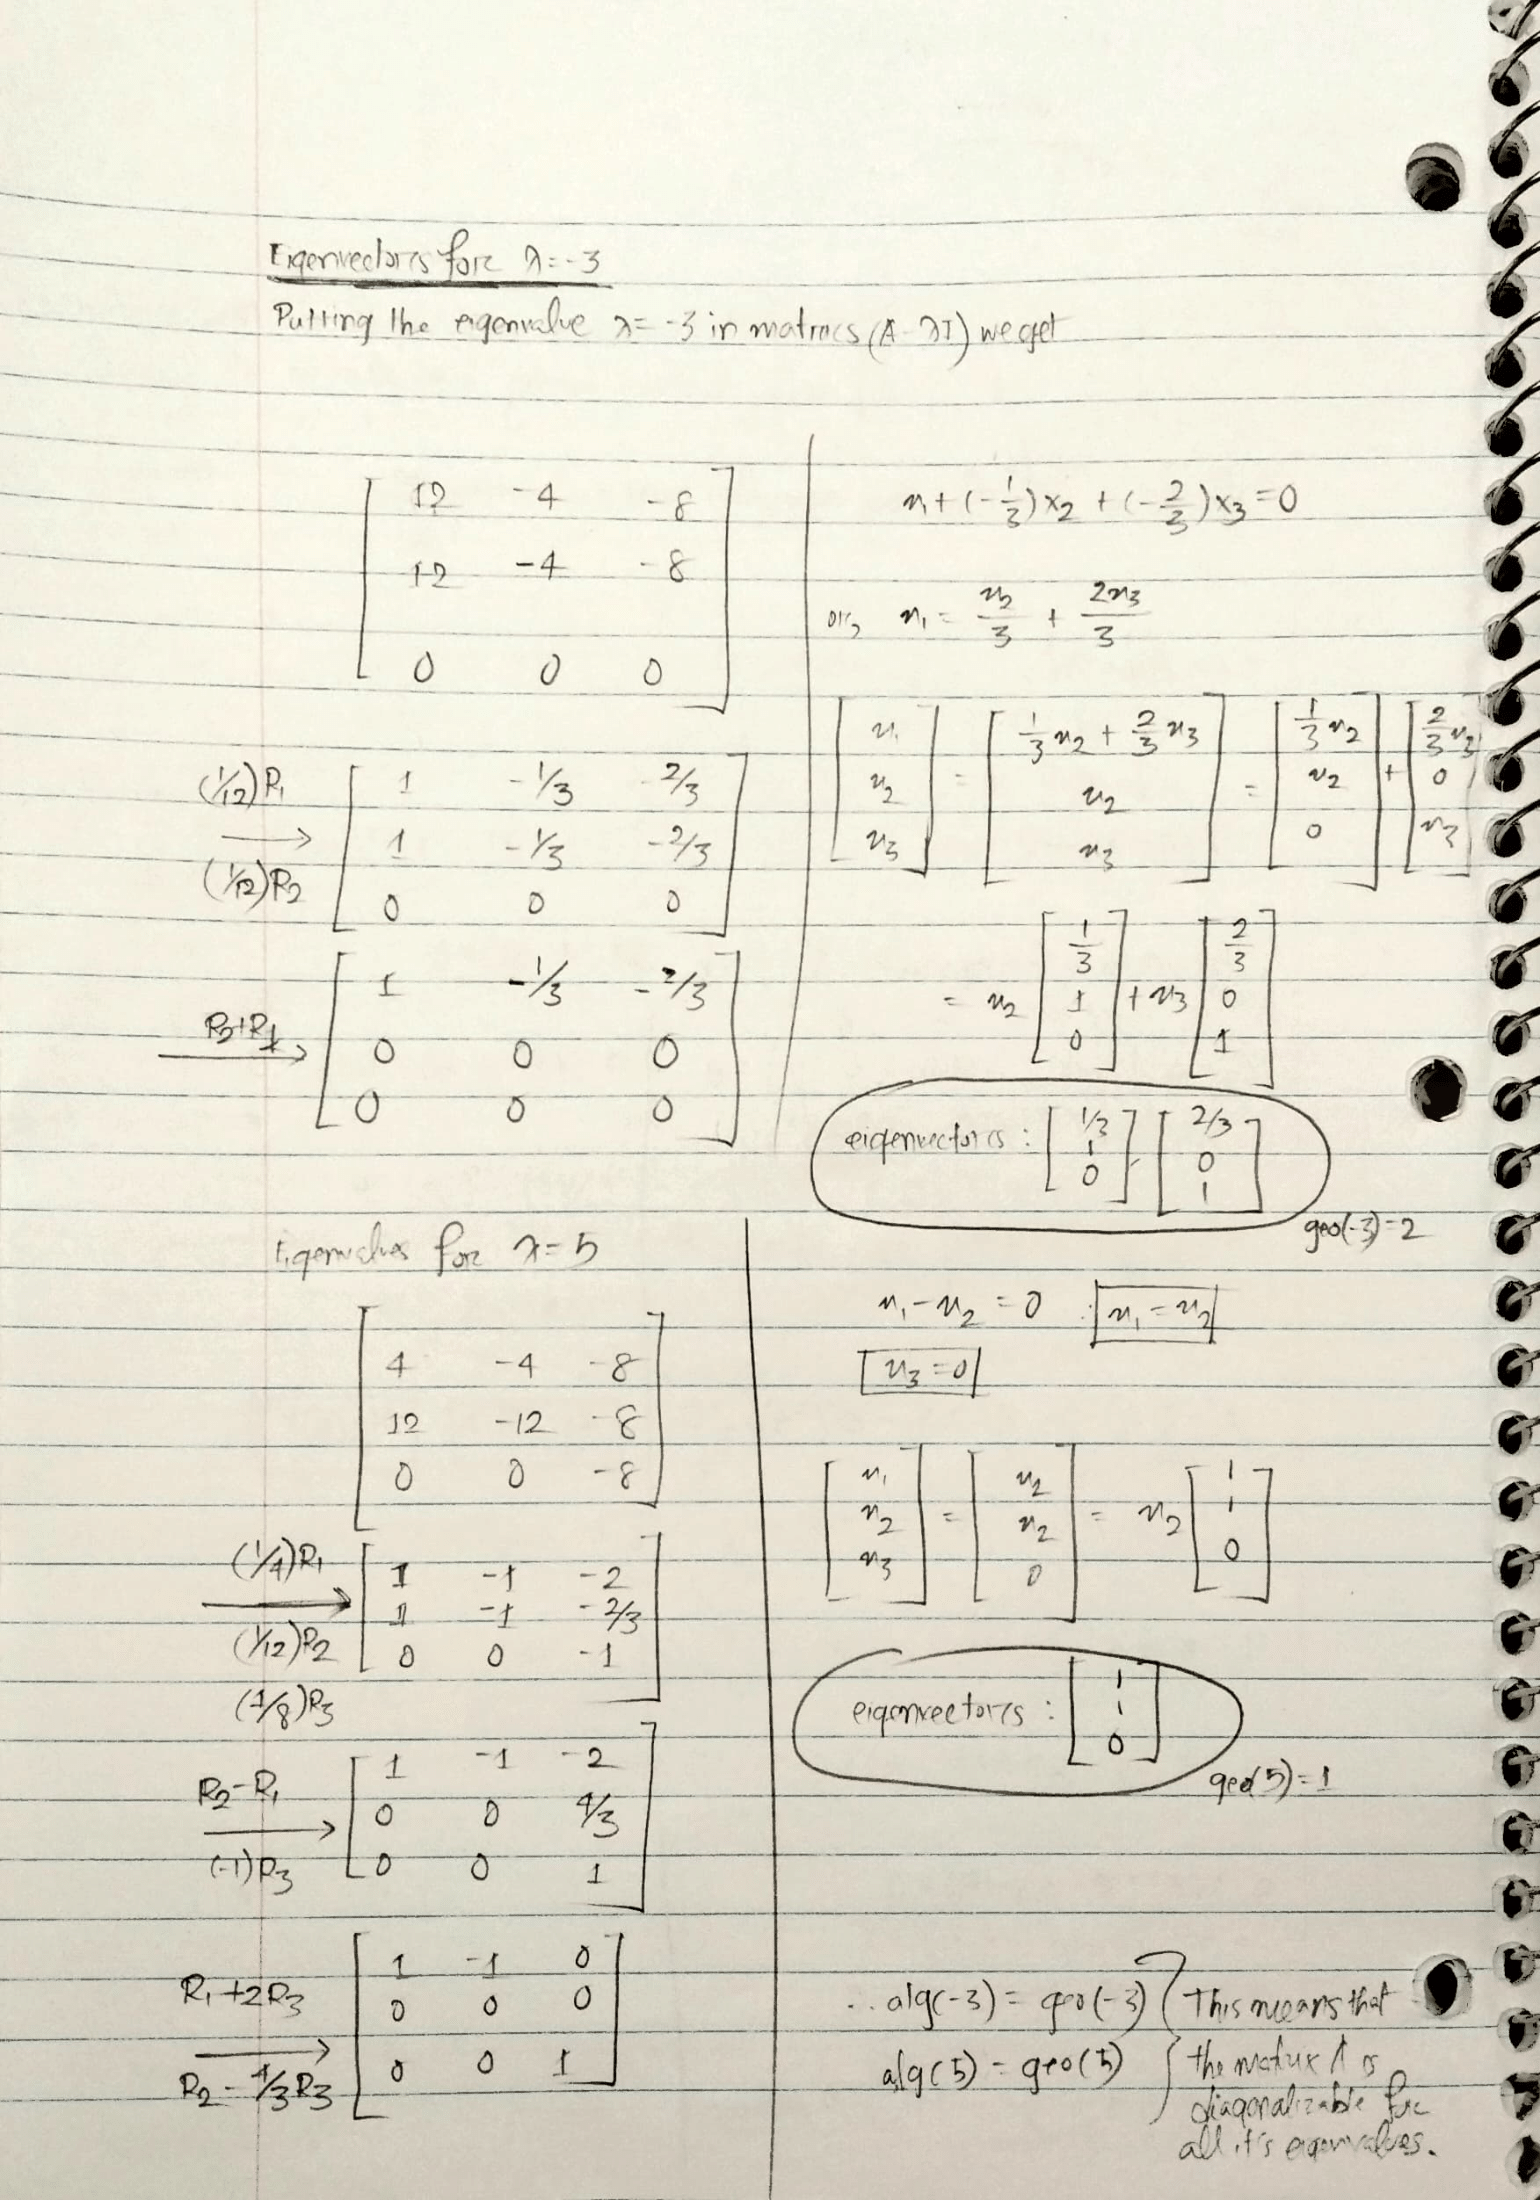 Eigenvectors for λ=-3
Putting the eigenvalue λ= -3 in matrics (A-λI) we get
12 -4 -8
12 -4 -8
0 0 0
(1/12)R1
→
(1/12)R2
1 -1/3 -2/3
1 -1/3 -2/3
0 0 0
R2+R1
→
1 -1/3 -2/3
0 0 0
0 0 0
x1+(-1/3)x2 + (-2/3)x3=0
or, x1 = x2/3 + 2x3/3
[x1 x2 x3] = [1/3 x2 + 2/3 x3, x2, x3] = [1/3 x2, x2, 0] + [2/3 x3, 0, x3]
= x2 [1/3 1 0] + x3 [2/3 0 1]
eigenvectors : [1/3 1 0], [2/3 0 1]
geo(-3)=2
Eigenvalues for λ=5
4 -4 -8
12 -12 -8
0 0 -8
(1/4)R1
→
(1/12)R2
(1/8)R3
1 -1 -2
1 -1 -2/3
0 0 -1
R2-R1
→
(-1)R3
1 -1 -2
0 0 4/3
0 0 1
R1+2R3
→
R2-4/3R3
1 -1 0
0 0 0
0 0 1
x1-x2=0 x1=x2
x3=0
[x1 x2 x3] = [x2 x2 0] = x2 [1 1 0]
eigenvectors : [1 1 0]
geo(5)=1
∴ alg(-3) = geo(-3)
alg(5) = geo(5)
This means that
the matrix A is
diagonalizable for
all it's eigenvalues.